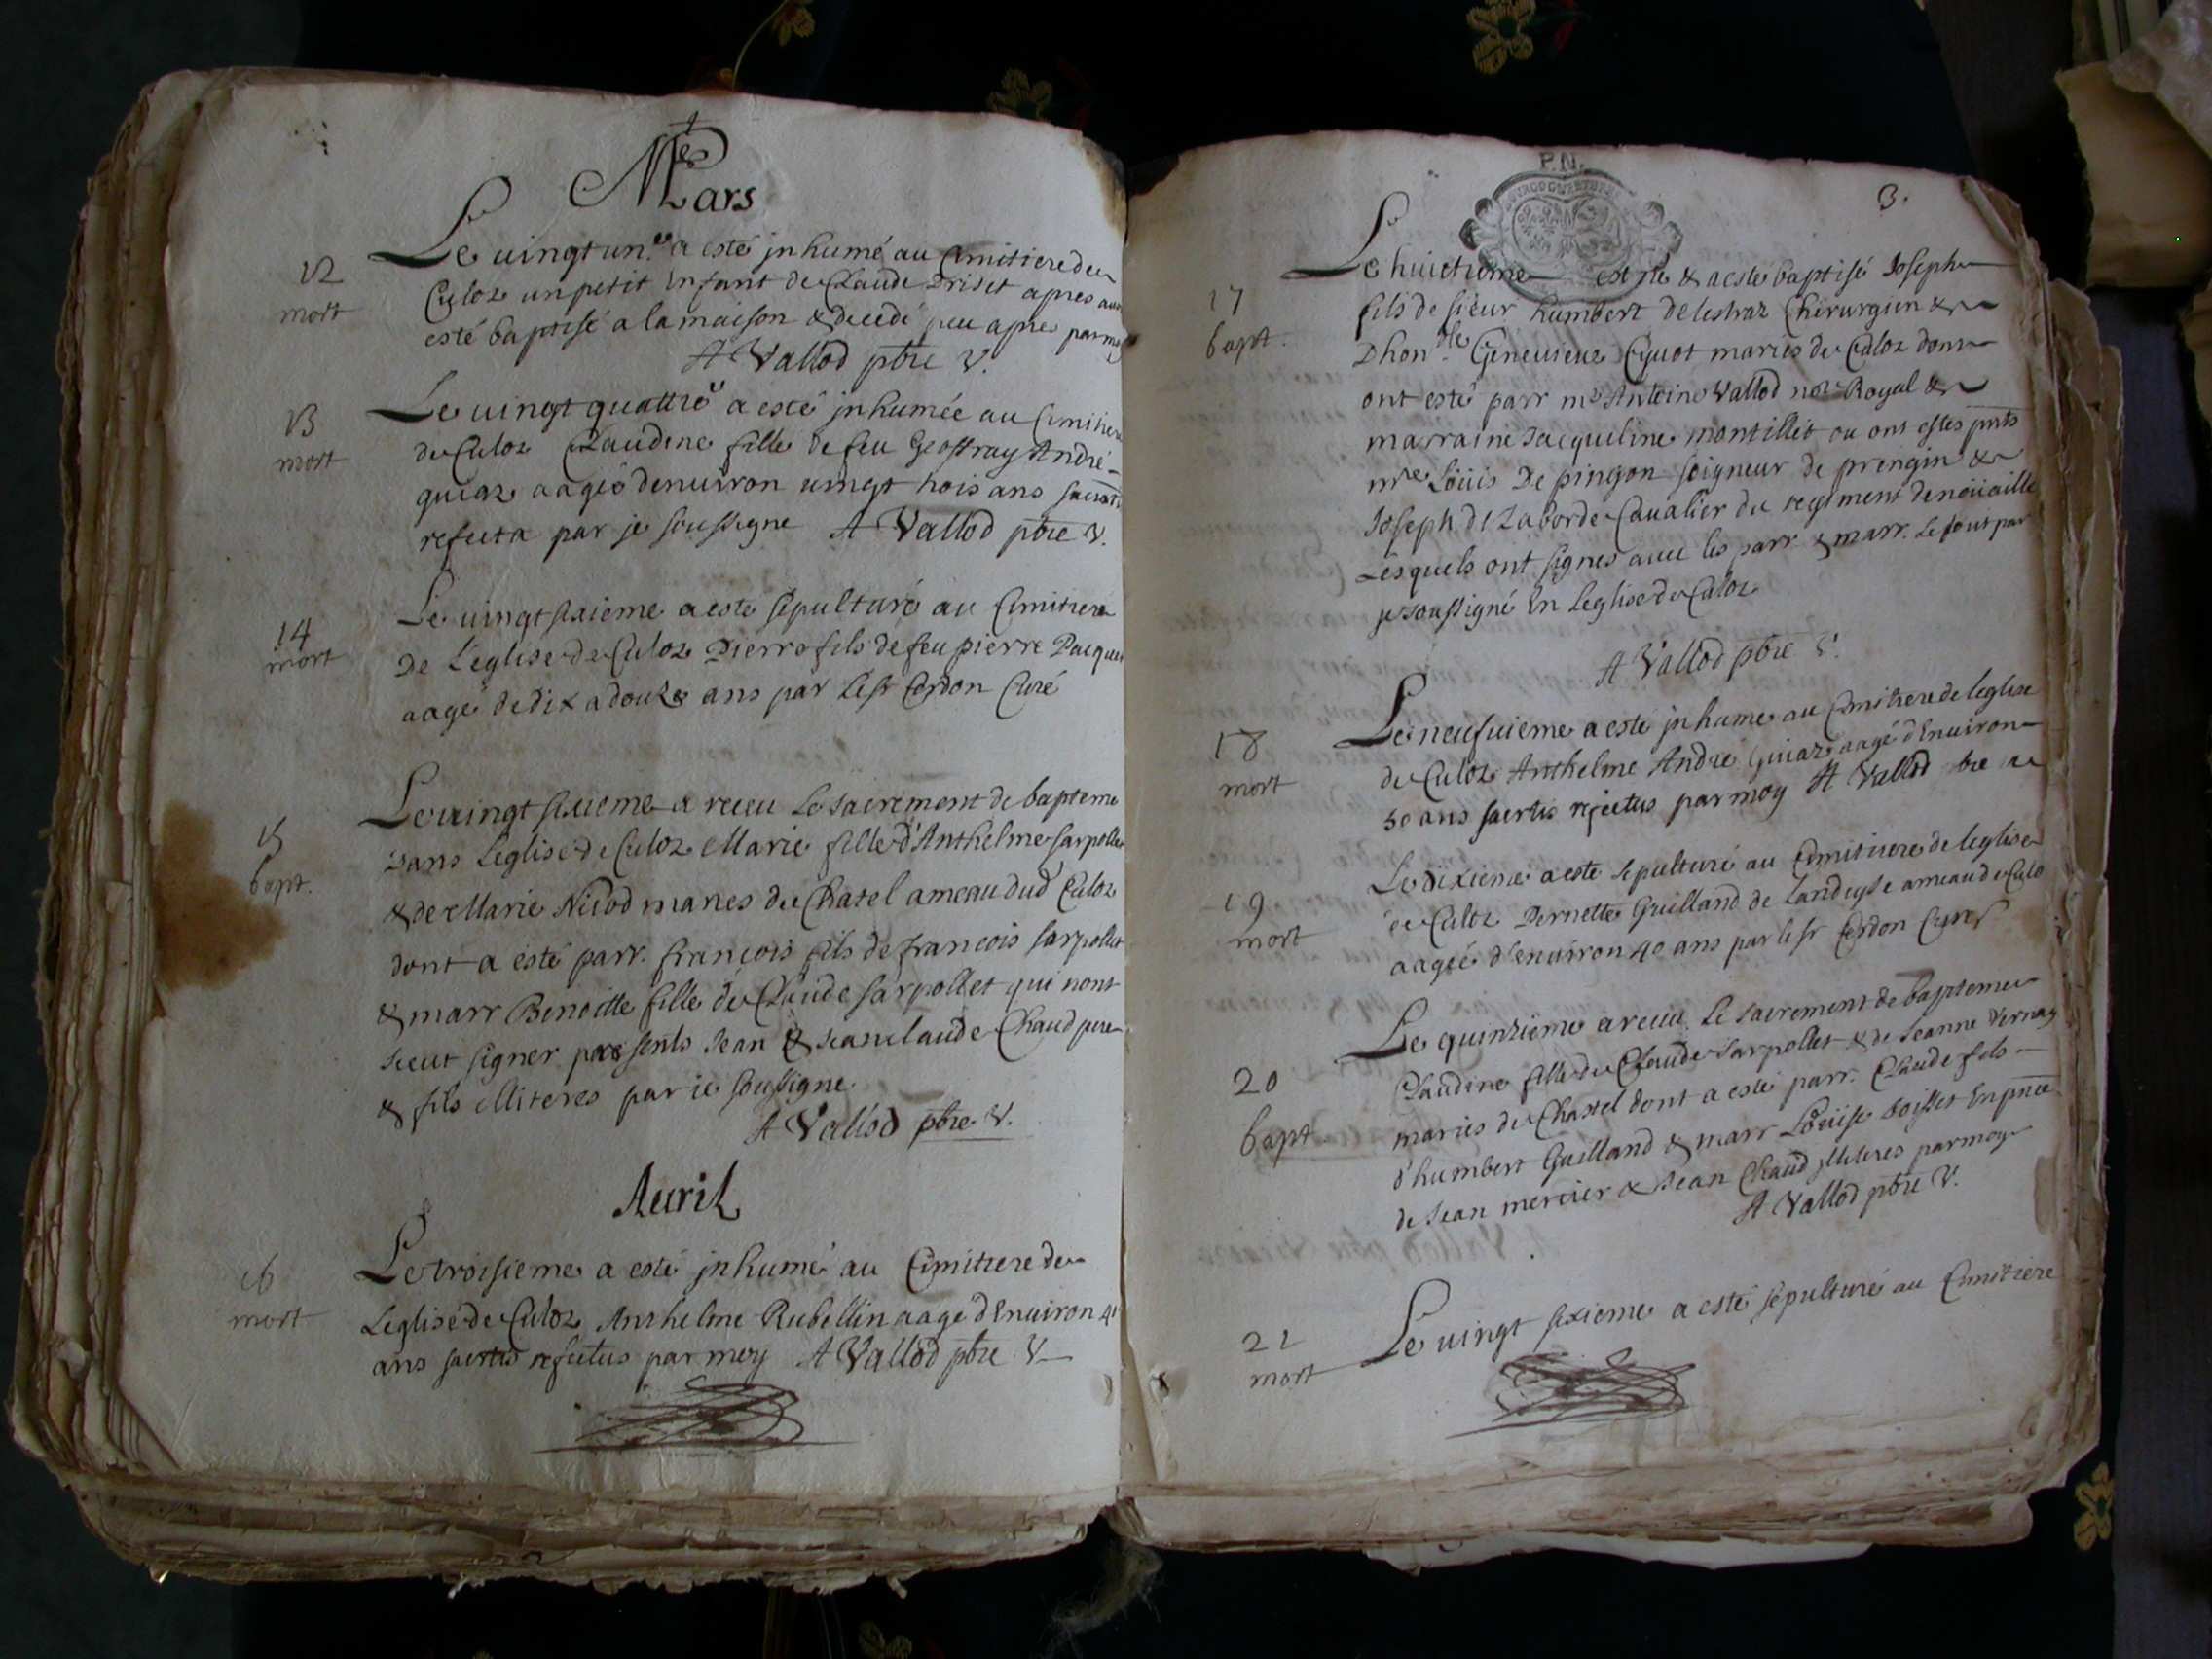 Mars
12
mort
Le vingt un.e a esté jnhumé au Cimitiere de
Culoz un petit Enfant de Claude Driset apres
esté baptisé a la maison & decedé peu apres par moy
A Vallod pbre V.
13
mort
Le vingt quattre a esté jnhumée au Cimitiere
de Culoz Claudine fille de feu Geoffray André
quiaz aagée denuiron uingt trois ans
refecta par je soussigne A Vallod pbre V.
14
mort
Le uingt sixieme a esté sepulturé au Cimitiere
De L'eglise de Culoz Pierre fils de feu pierre Pacquet
aagé de dix a douze ans par Le sr Cordon Curé
15
bapt.
Le uingt sixieme a receu Le sacrement de bapteme
Dans Leglise de Culoz Marie fille d'Anthelme Sarpollet
& de Marie Nicod maries du Chatel ameau dud Culoz
dont a esté parr. françois fils de françois Sarpollet
& marr Benoitte fille de Claude Sarpollet qui nont
sceut signer presents Jean & Jean claude Chaud pere
& fils illiteres par je soussigne
A Vallod pbre V.
Auril
16
mort
Le troisieme a esté jnhumé au Cimitiere de
Leglise de Culoz Anthelme Rubellin aagé d'Enuiron
ans sacrtis refectus par moy A Vallod pbre V
3.
P.N.
17
bapt.
Le huictieme est né & a esté baptisé Joseph
fils de sieur humbert delestraz Chirurgien &
D hon.ble Geneuieue Cyuot mariés de Culoz dont
ont esté parr mre Antoine Vallod nore Royal &
marraine Jacqueline montillet ou ont estés pnts
mre Loüis De pingon seigneur de prengin &
Joseph de Laborde Caualier du regiment de noüaille
Lesquels ont signés auec les parr & marr. Le tout par
je soussigné En Leglise de Culoz
A Vallod pbre V.
18
mort
Le neufuieme a esté jnhume au Cimitiere de leglise
de Culoz Anthelme André Quiaz aagé d'Enuiron
50 ans sacrtis refectus par moy A Vallod bre
19
mort
Le dixieme a esté sepulturé au Cimitiere de leglise
de Culoz Pernette Guilland de Landeyse ameau de Culo
aagée d'enuiron 40 ans par le sr Cordon Curé
20
bapt
Le quinzieme a receu Le sacrement de bapteme
Claudine fille de Claude Sarpollet & de Jeanne Vernay
mariés du Chastel dont a esté parr. Claude fils
d'humbert Guilland & marr Loüise boisset En pnce
de Jean mercier & Jean Chaud jlliteres par moy
A Vallod pbre V.
21
mort
Le uingt sixieme a esté sepulturé au Cimitiere